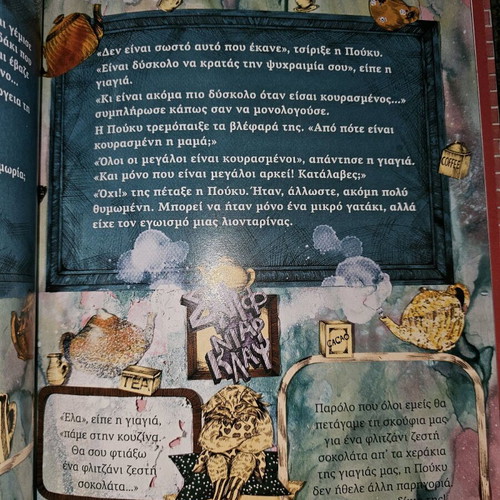 «Δεν είναι σωστό αυτό που έκανε», τσίριξε η Πούκυ.
«Είναι δύσκολο να κρατάς την ψυχραιμία σου», είπε η
γιαγιά.
«Κι είναι ακόμα πιο δύσκολο όταν είσαι κουρασμένος...»
συμπλήρωσε κάπως σαν να μονολογούσε.
Η Πούκυ τρεμόπαιξε τα βλέφαρά της. «Από πότε είναι
κουρασμένη η μαμά;»
«Όλοι οι μεγάλοι είναι κουρασμένοι», απάντησε η γιαγιά.
«Και μόνο που είναι μεγάλοι αρκεί! Κατάλαβες;»
«Όχι!» της πέταξε η Πούκυ. Ήταν, άλλωστε, ακόμη πολύ
θυμωμένη. Μπορεί να ήταν μόνο ένα μικρό γατάκι, αλλά
είχε τον εγωισμό μιας λιονταρίνας.
COFFEE
CACAO
TEA
ΝΤΑΡ
ΚΛΑΨ
«Έλα», είπε η γιαγιά,
«πάμε στην κουζίνα.
Θα σου φτιάξω
ένα φλιτζάνι ζεστή
σοκολάτα...»
Παρόλο που όλοι εμείς θα
πετάγαμε τη σκούφια μας
για ένα φλιτζάνι ζεστή
σοκολάτα απ' τα χεράκια
της γιαγιάς μας, η Πούκυ
δεν ήθελε άλλη παρηγοριά